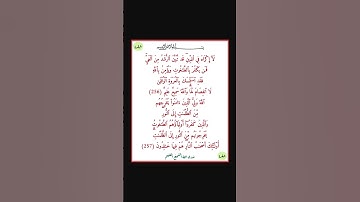 لَآ إِكْرَاهَ فِي الدِّينِ قَد تَّبَيَّنَ الرُّشْدُ مِنَ الْغَيِّ
فَمَن يَكْفُرْ بِالطَّاغُوتِ وَيُؤْمِن بِاللَّهِ
فَقَدِ اسْتَمْسَكَ بِالْعُرْوَةِ الْوُثْقَىٰ
لَا انفِصَامَ لَهَا وَاللَّهُ سَمِيعٌ عَلِيمٌ (256)
اللَّهُ وَلِيُّ الَّذِينَ ءَامَنُوا يُخْرِجُهُم
مِّنَ الظُّلُمَٰتِ إِلَى النُّورِ
وَالَّذِينَ كَفَرُوا أَوْلِيَاؤُهُمُ الطَّاغُوتُ
يُخْرِجُونَهُم مِّنَ النُّورِ إِلَى الظُّلُمَٰتِ
أُولَٰئِكَ أَصْحَٰبُ النَّارِ هُمْ فِيهَا خَٰلِدُونَ (257)